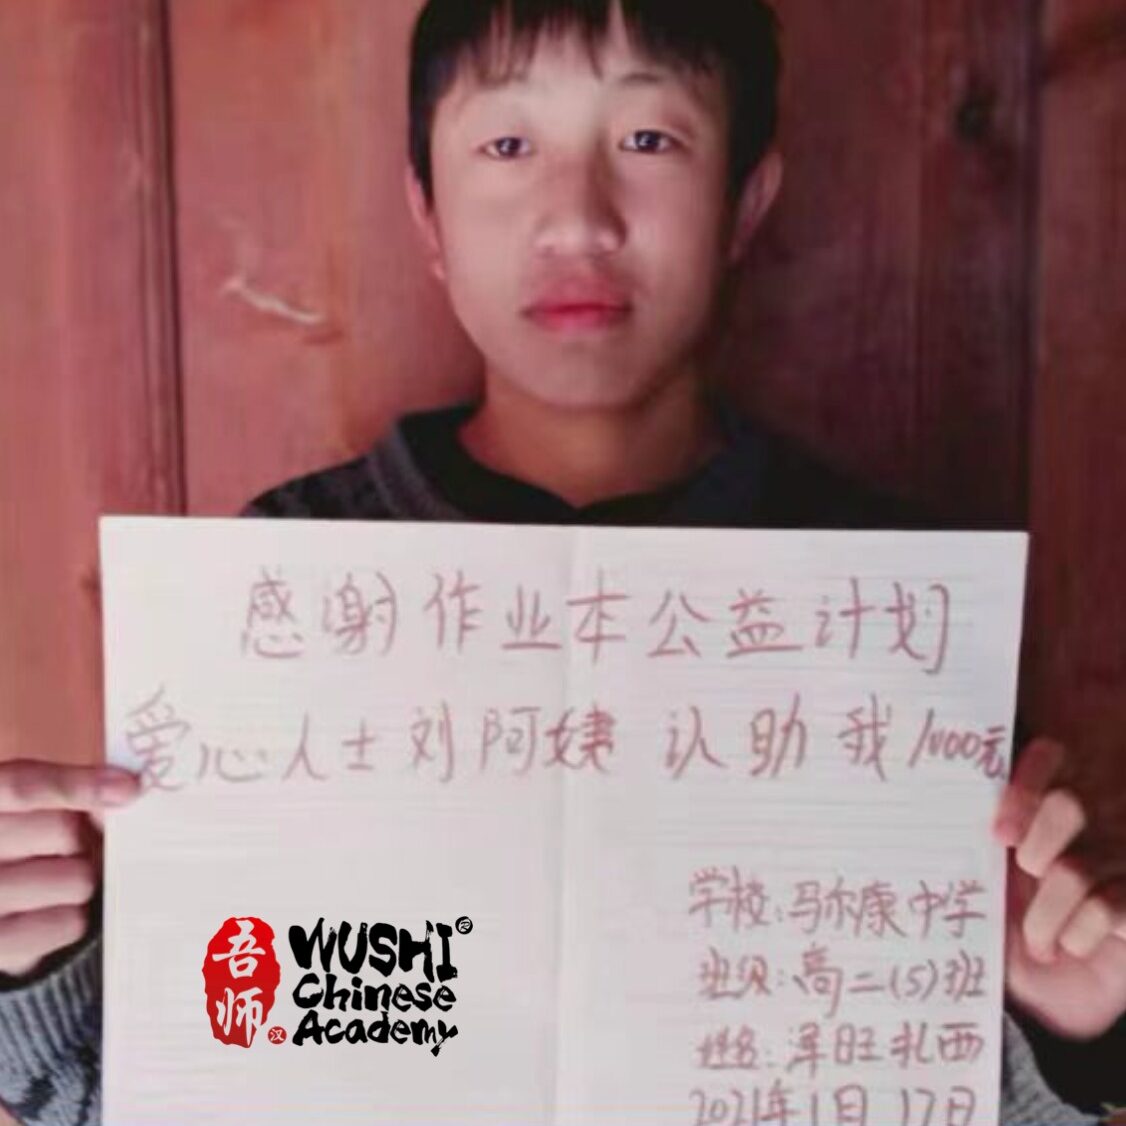 感谢作业本公益计划
爱心人士刘阿姨 认助我1000元
学校:马尔康中学
班级:高二(5)班
姓名:泽旺扎西
2021年1月17日
吾师
汉
WUSHI®
Chinese
Academy